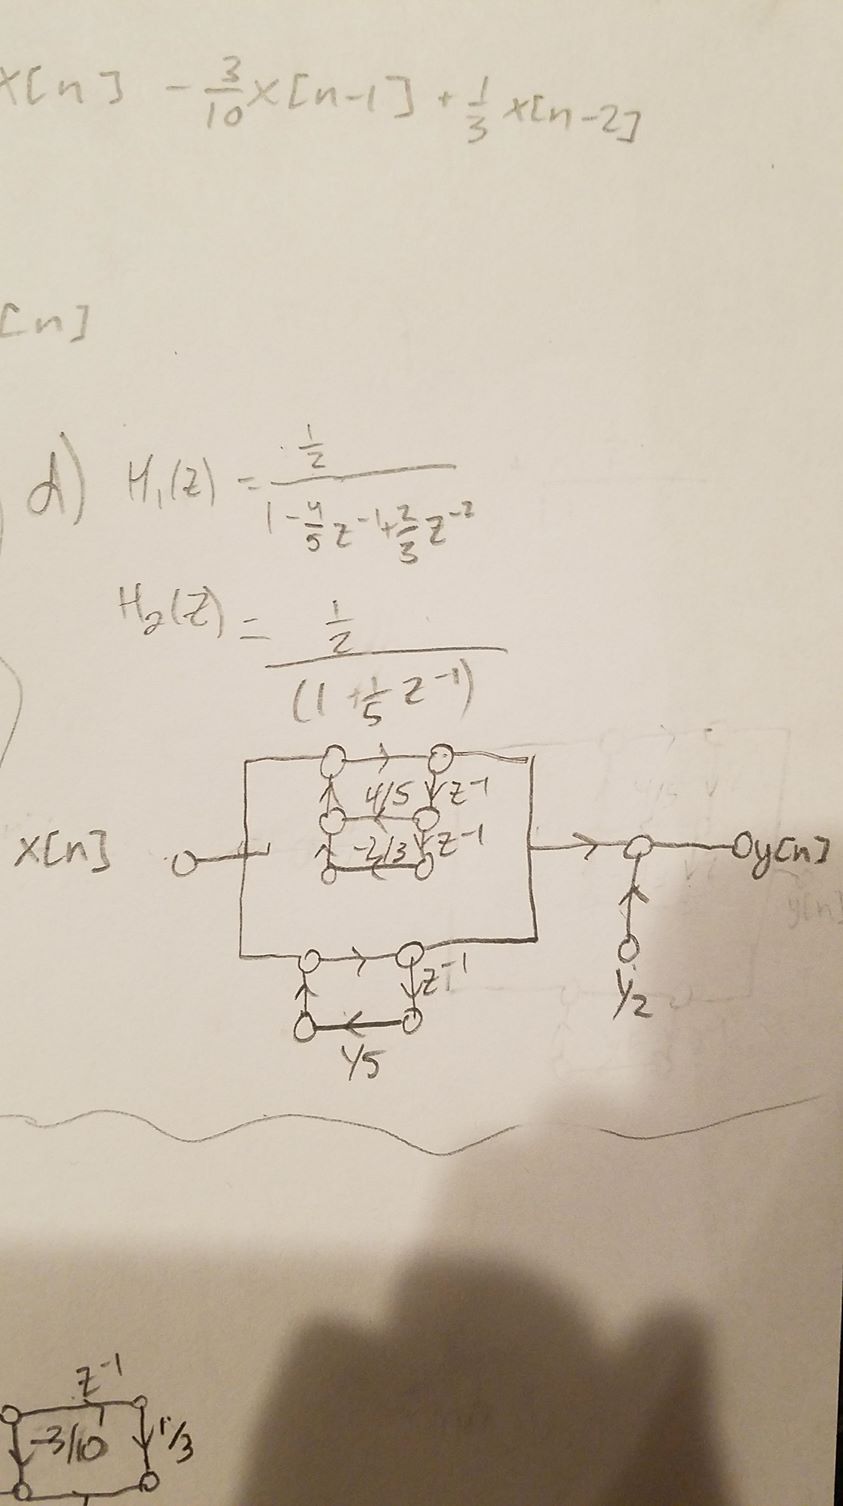 x[n] - 3/10 x[n-1] + 1/3 x[n-2]
[n]
d) H₁(z) = 1/2 / 1 - 4/5 z⁻¹ + 2/3 z⁻²
H₂(z) = 1/2 / (1 + 1/5 z⁻¹)
4/5 z⁻¹
x[n] -2/3 z⁻¹ y[n]
z⁻¹
1/2
1/5
z⁻¹
-3/10 1/3